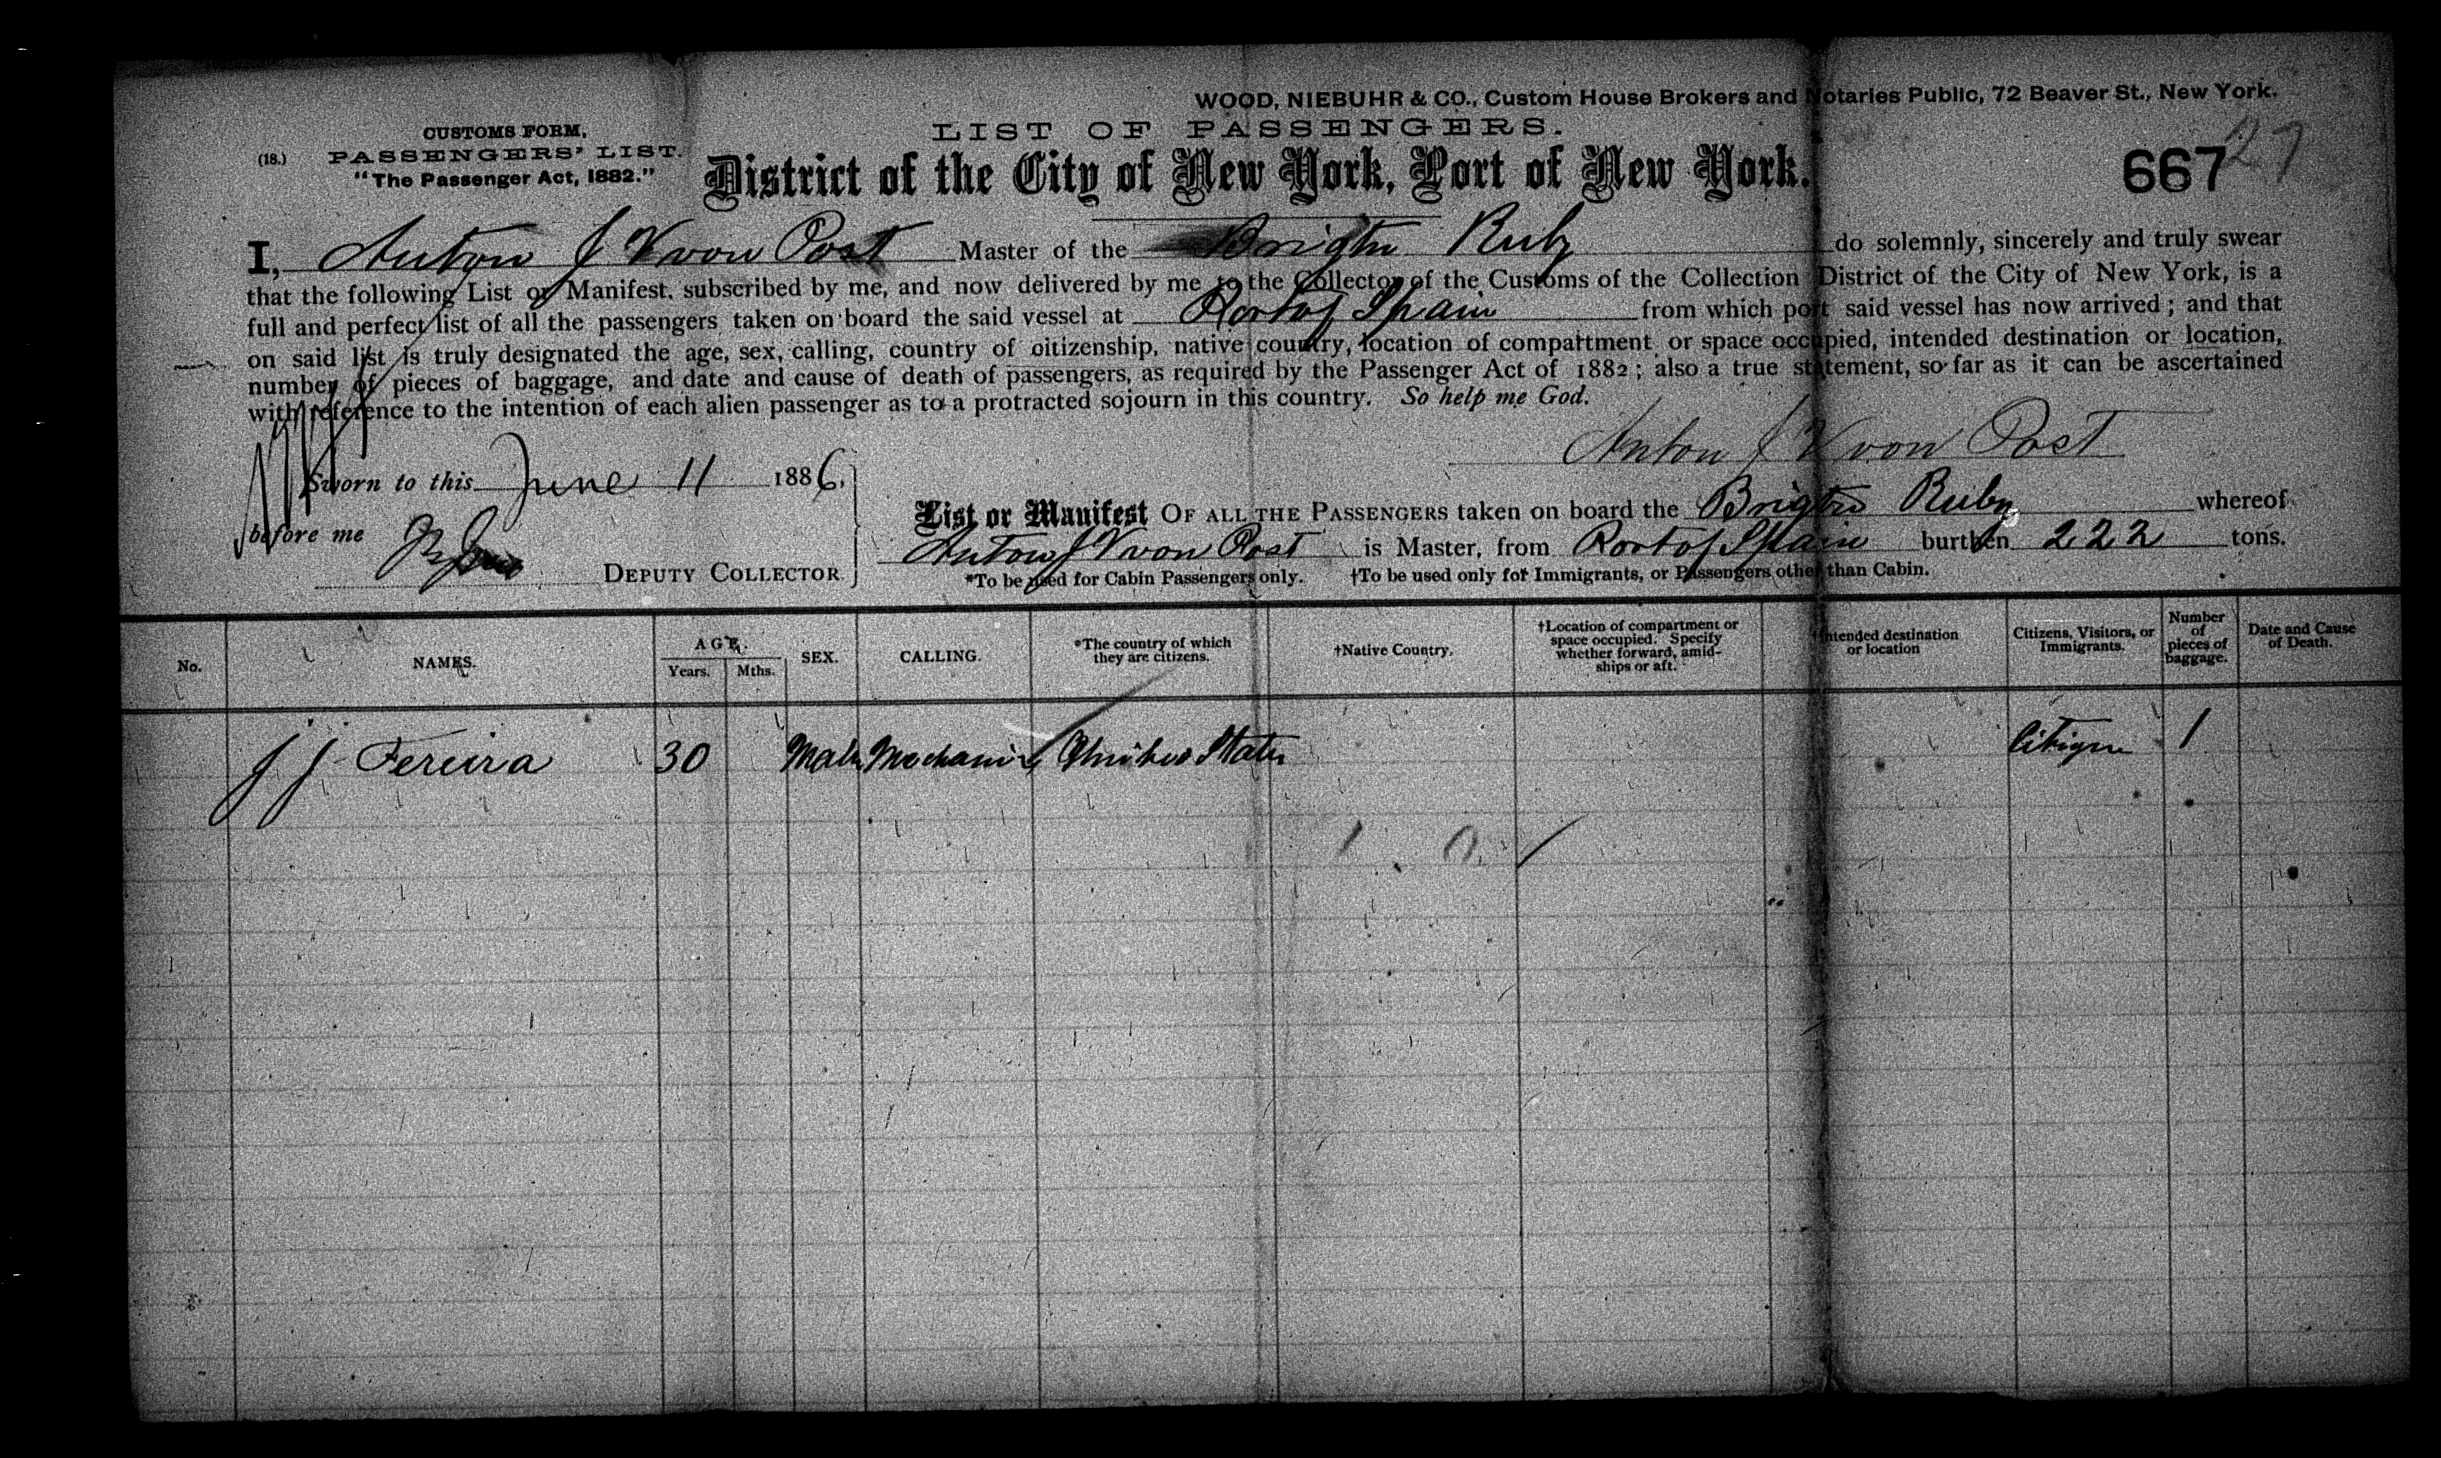 WOOD, NIEBUHR & CO., Custom House Brokers and Notaries Public, 72 Beaver St., New York.
CUSTOMS FORM,
(18.) PASSENGERS' LIST.
"The Passenger Act, 1882."
LIST OF PASSENGERS.
District of the City of New York, Port of New York.
667
27
I, Anton J V von Post Master of the Brigtn Ruby do solemnly, sincerely and truly swear
that the following List or Manifest, subscribed by me, and now delivered by me to the Collector of the Customs of the Collection District of the City of New York, is a
full and perfect list of all the passengers taken on board the said vessel at Port of Spain from which port said vessel has now arrived; and that
on said list is truly designated the age, sex, calling, country of citizenship, native country, location of compartment or space occupied, intended destination or location,
number of pieces of baggage, and date and cause of death of passengers, as required by the Passenger Act of 1882; also a true statement, so far as it can be ascertained
with reference to the intention of each alien passenger as to a protracted sojourn in this country. So help me God.
Anton J V von Post
Sworn to this June 11 1886,
before me
DEPUTY COLLECTOR
List or Manifest OF ALL THE PASSENGERS taken on board the Brigtn Ruby whereof
Anton J V von Post is Master, from Port of Spain burthen 222 tons.
*To be used for Cabin Passengers only. †To be used only for Immigrants, or Passengers other than Cabin.
No. NAMES. AGE. Years. Mths. SEX. CALLING. *The country of which they are citizens. †Native Country. †Location of compartment or space occupied. Specify whether forward, amidships or aft. †Intended destination or location Citizens, Visitors, or Immigrants. Number of pieces of baggage. Date and Cause of Death.
J J Fereira 30 Male Mechanic United States Citizen 1
1 . 0